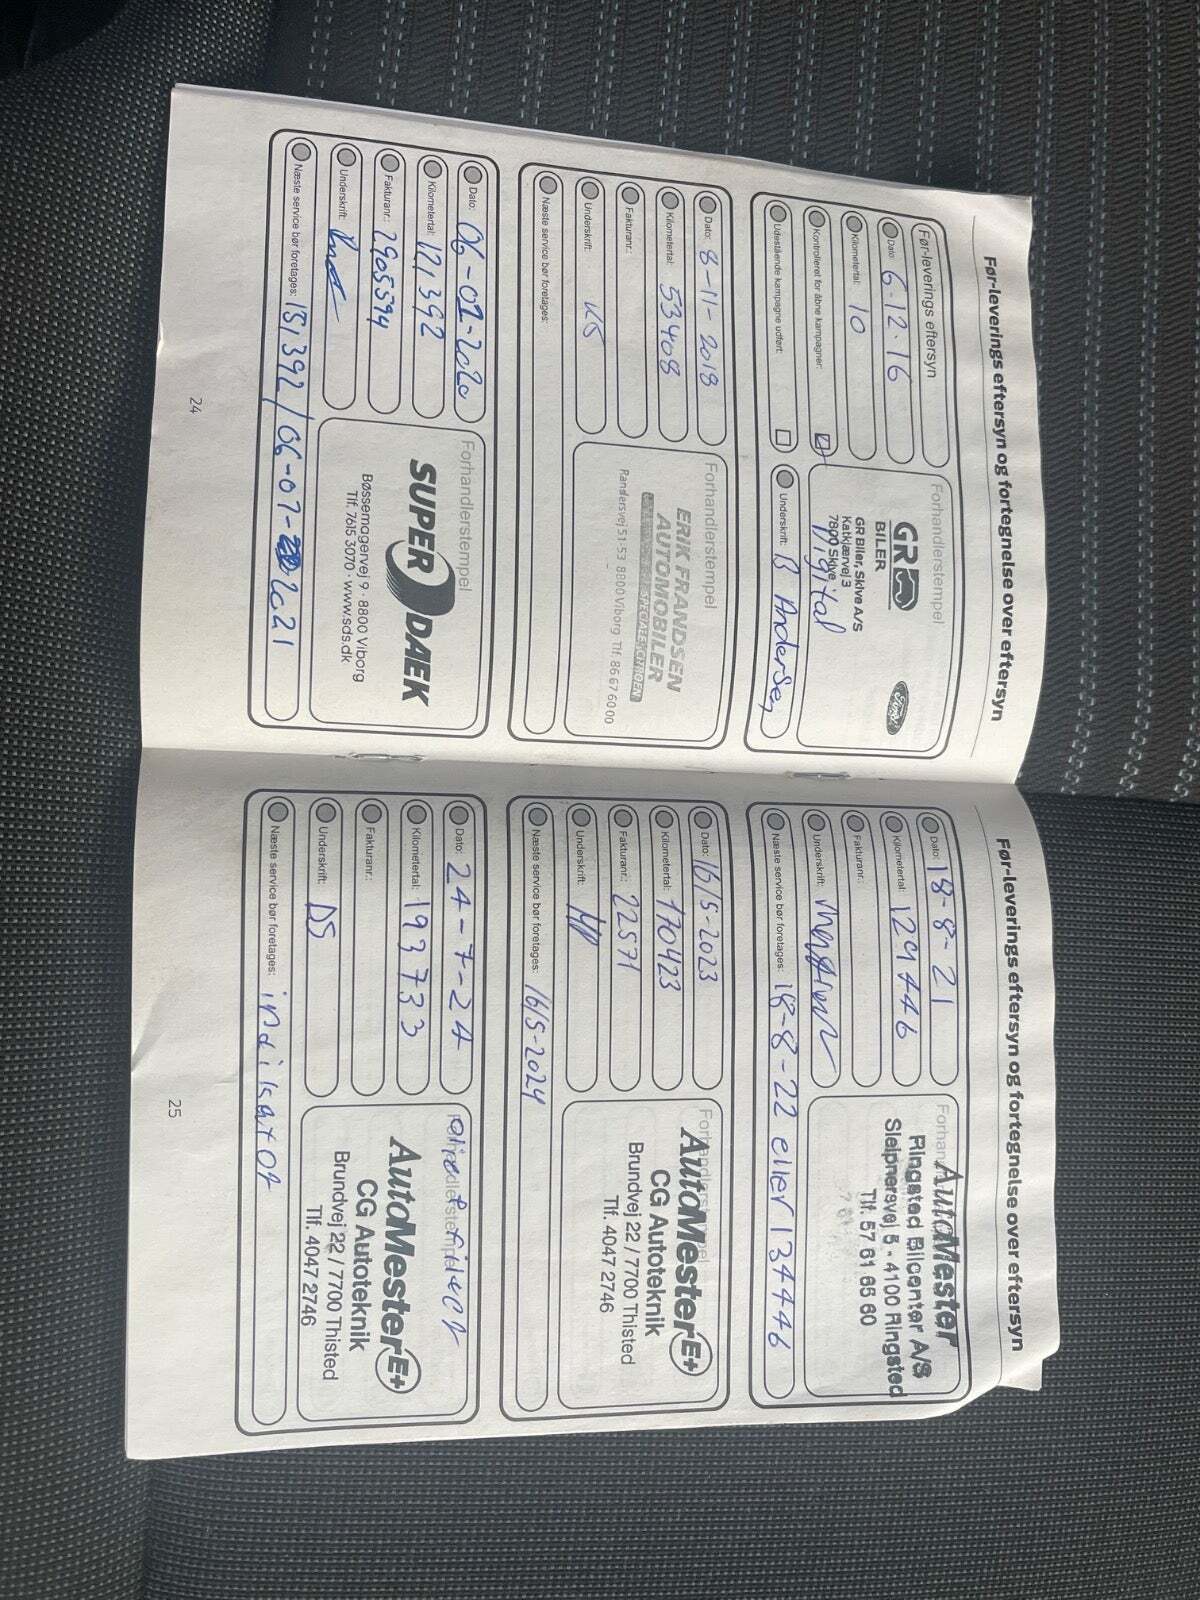 Før-leverings eftersyn og fortegnelse over eftersyn
Før-leverings eftersyn
Dato: 6-12-16
Kilometertal: 10
Kontrolleret for åbne kampagner:
Udestående kampagne udført:
Forhandlerstempel
GR
BILER
GR Biler, Skive A/S
Katkjærvej 3
7800 Skive
Digital
Ford
Underskrift: B Andersen
Dato: 8-11-2018
Kilometertal: 53408
Fakturanr.:
Underskrift: KS
Næste service bør foretages:
Forhandlerstempel
ERIK FRANDSEN
AUTOMOBILER
SPECIALE CITROEN
Randersvej 51-53 8800 Viborg Tlf. 86 67 60 00
Dato: 06-02-2020
Kilometertal: 121392
Fakturanr.: 2905594
Underskrift:
Næste service bør foretages: 151392/06-07-2021
Forhandlerstempel
SUPER DAEK
Bøssemagervej 9 · 8800 Viborg
Tlf. 7615 3070 · www.sds.dk
24
Før-leverings eftersyn og fortegnelse over eftersyn
Dato: 18-8-21
Kilometertal: 129446
Fakturanr.:
Underskrift:
Næste service bør foretages: 18-8-22 eller 134446
AutoMester
Ringsted Bilcenter A/S
Sleipnersvej 5 - 4100 Ringsted
Tlf. 57 61 65 60
Dato: 16/5-2023
Kilometertal: 170423
Fakturanr.: 22571
Underskrift: HP
Næste service bør foretages: 16/5-2024
Forhandlerstempel
AutoMester E+
CG Autoteknik
Brundvej 22 / 7700 Thisted
Tlf. 4047 2746
Dato: 24-7-24
Kilometertal: 193733
Fakturanr.:
Underskrift: DS
Næste service bør foretages: indikator
Forhandlerstempel
olie + filter
AutoMester E+
CG Autoteknik
Brundvej 22 / 7700 Thisted
Tlf. 4047 2746
25